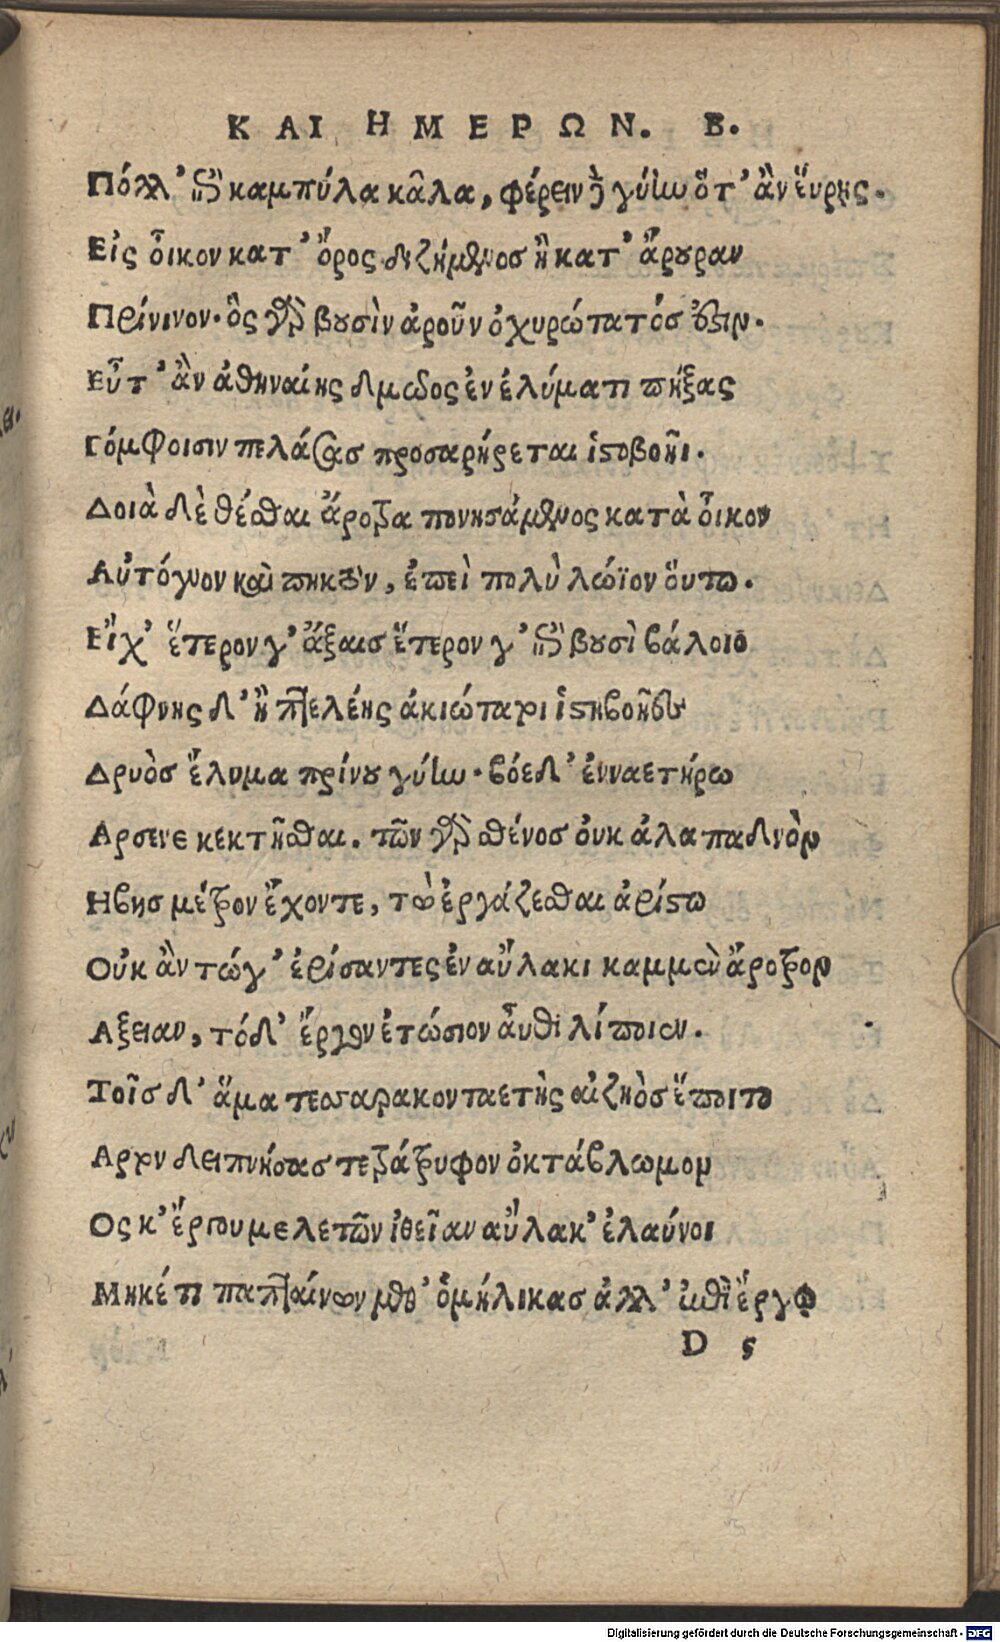 ΚΑΙ ΗΜΕΡΩΝ. Β.
Πόλλ' ἐπικαμπύλα κᾶλα, φέρειν ἢ γύην ὅτ' ἂν ἕυρῃς.
Εἰς ὖικον κατ' ὄρος διζήμενος ἢ κατ' ἄρουραν
Πρίνινον· ὃς γὰρ βουσὶν ἀροῦν ὀχυρώτατός ὅστιν.
Εὖτ' ἂν ἀθηναίης δμωδος ἐν ἐλύματι πήξας
Γόμφοισιν πελάσας προσαρήρεται ἱστοβοῆι.
Δοιὰ δὲ θέσθαι ἄροτρα πονησάμενος κατὰ οἶκον
Αὐτόγυον καὶ πηκτὸν, ἐπεὶ πολὺ λώϊον ὅυτω.
Εἴχ' ἕτερον γ' ἄξαις ἕτερον γ' ἐπὶ βουσὶ βάλοιο
Δάφνης δ' ἢ πτελέης ἀκιώτατοι ἱστηβοῆες
Δρυὸς ἔλυμα πρίνου γύην· βόε δ' ἐνναετήρω
Αρσενε κεκτῆσθαι. τῶν γὰρ σθένος ὀυκ ἀλαπαδνὸν
Ηβης μέτρον ἔχοντε, τὼ ἐργάζεσθαι ἀρίστω
Οὐκ ἂν τώγ' ἐρίσαντες ἐν αὔλακι καμμὲν ἄροτρον
Αξειαν, τό δ' ἔργον ἐτώσιον ἆυθι λίποιεν.
Τοῖς δ' ἅμα τεσσαρακονταετὴς αἰζηὸς ἕποιτο
Αρτον δειπνήσας τετράτρυφον ὀκτάβλωμον
Ος κ' ἔργου μελετῶν ἰθεῖαν αὔλακ' ἐλαύνοι
Μηκέτι παπταίνων μεθ' ὁμήλικας ἀλλ' ἐπὶ ἔργῳ
D 5
Digitalisierung gefördert durch die Deutsche Forschungsgemeinschaft - DFG